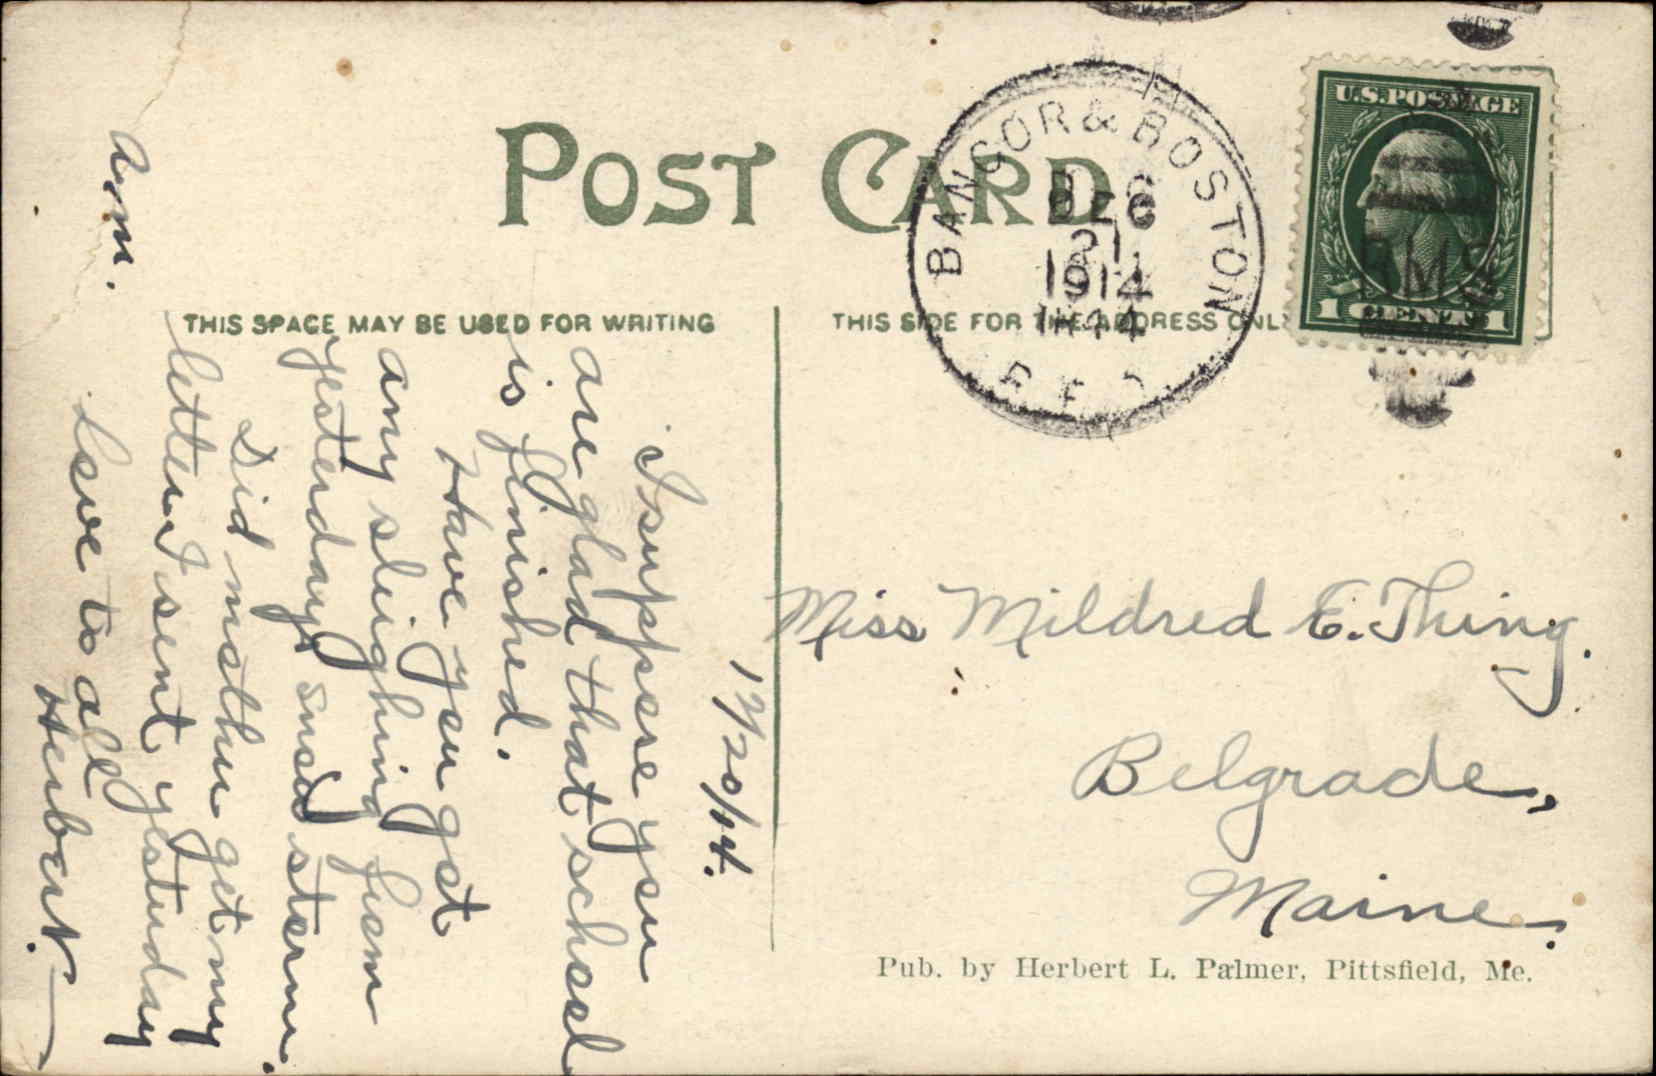 POST CARD
THIS SPACE MAY BE USED FOR WRITING
THIS SIDE FOR THE ADDRESS ONLY
BANGOR & BOSTON
DEC
21
1914
R.P.O.
U.S. POSTAGE
RMS
1 CENTS 1
12/20/14.
I suppose you
are glad that school
is finished.
Have you got
any sleighing from
yesterday's snow storm.
Did mother get my
letter I sent yesterday
a.m.
Love to all
Herbert.
Miss Mildred E. Thing.
Belgrade,
Maine.
Pub. by Herbert L. Palmer, Pittsfield, Me.